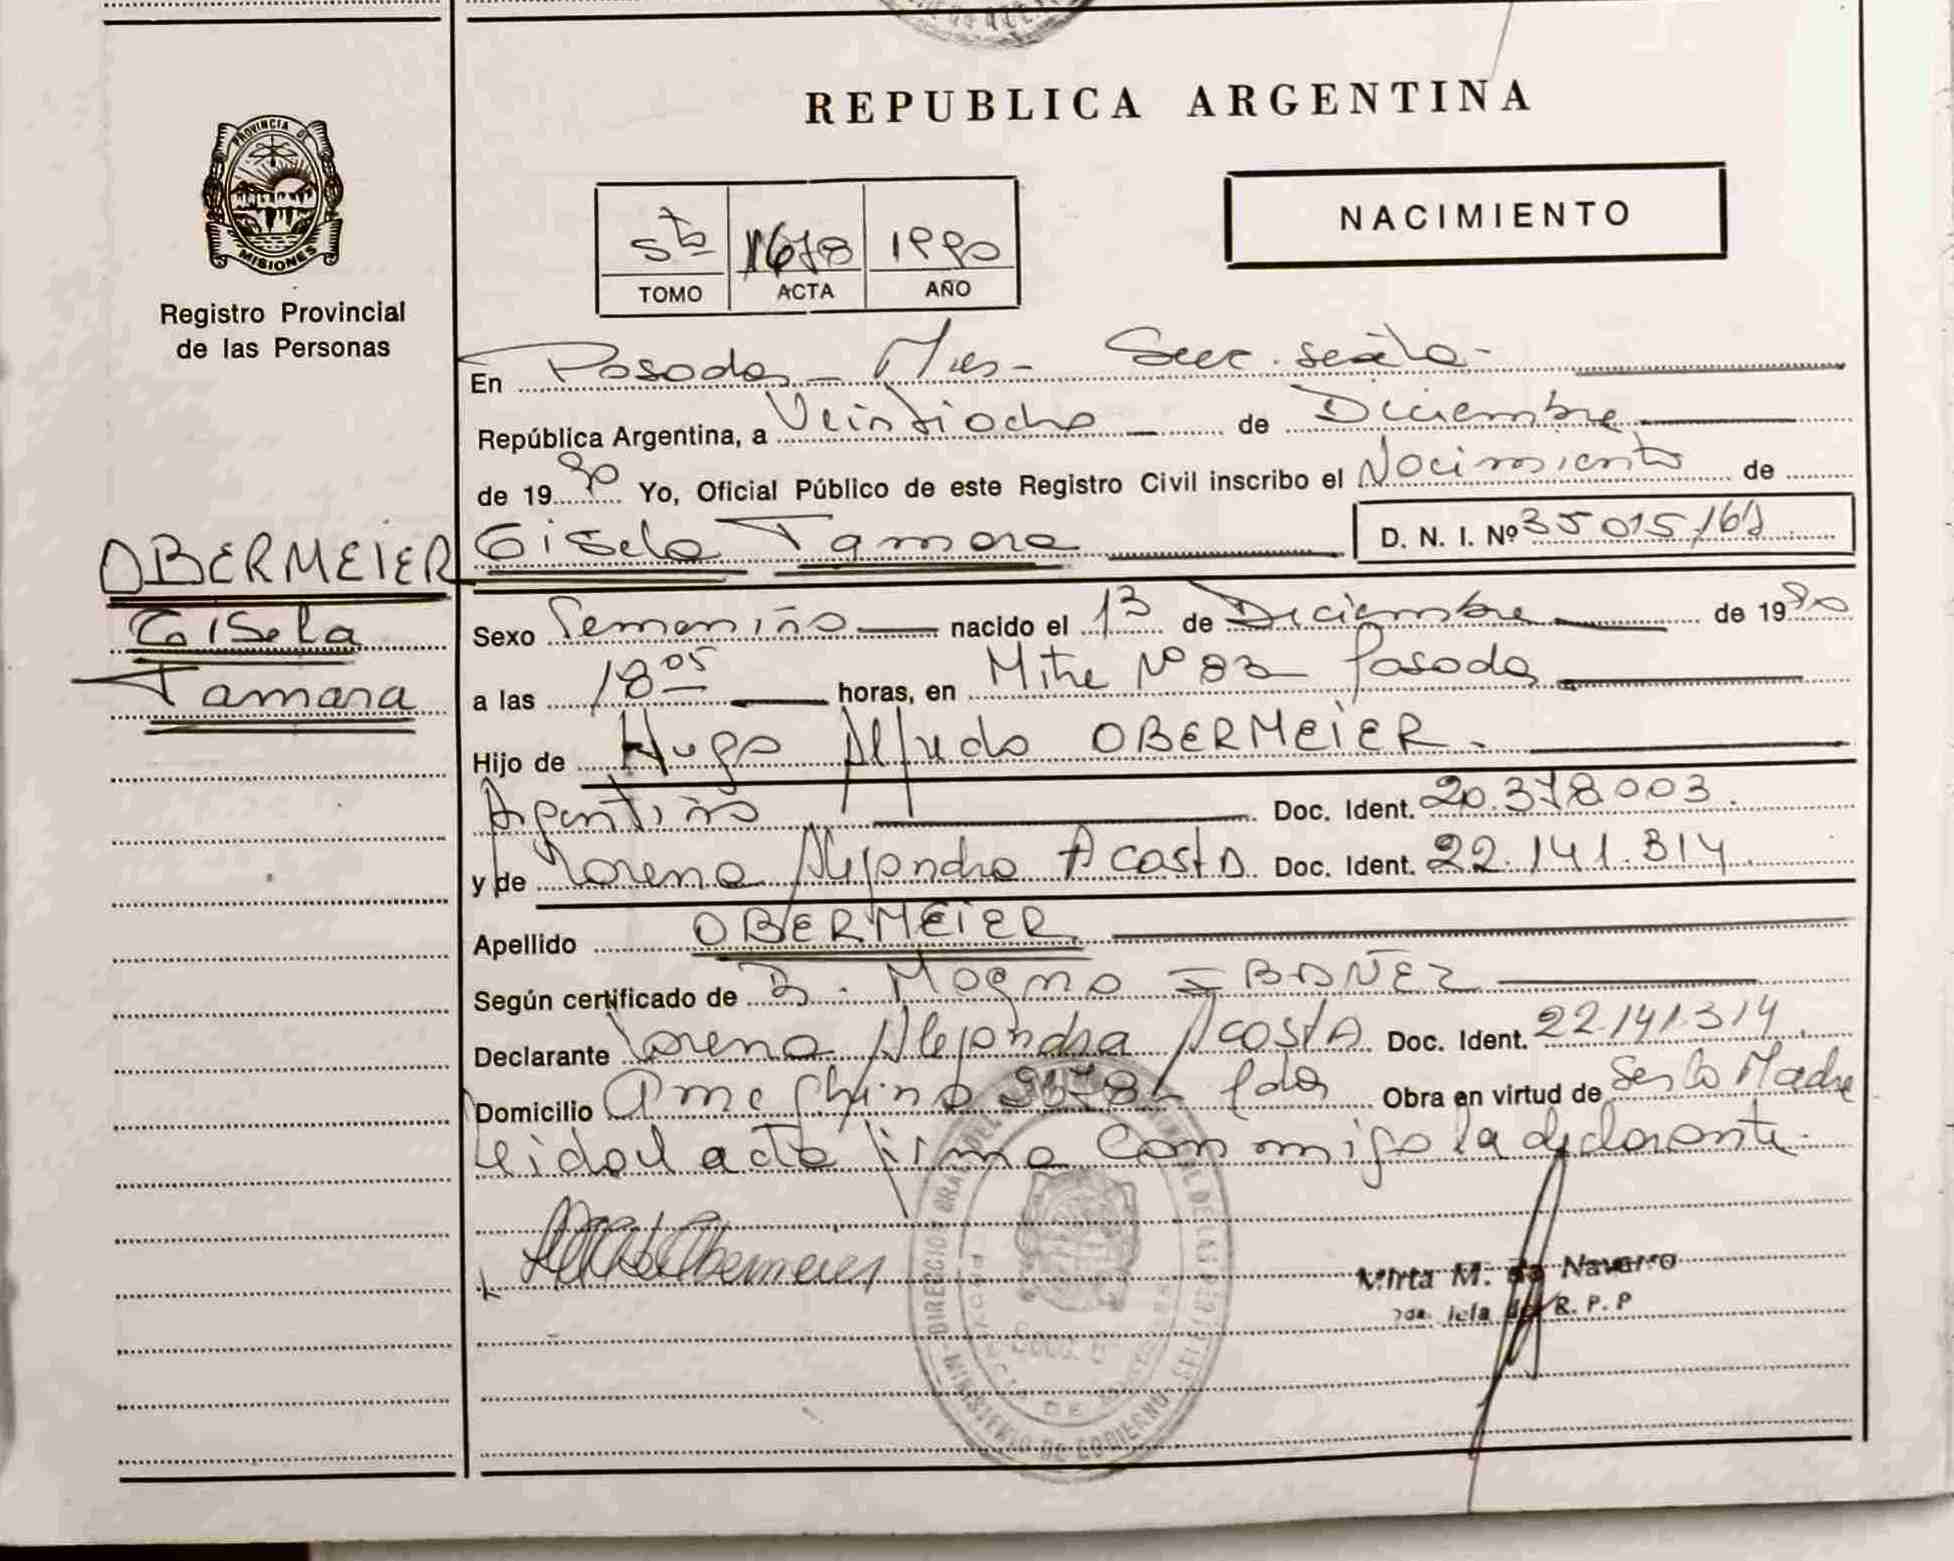 REPUBLICA ARGENTINA
PROVINCIA DE
MISIONES
Registro Provincial
de las Personas
5to 1678 1990
TOMO ACTA AÑO
NACIMIENTO
En Posadas - Mnes - Secc. sexta -
República Argentina, a Veintiocho de Diciembre
de 1990 Yo, Oficial Público de este Registro Civil inscribo el Nacimiento de
Gisela Tamara D. N. I. Nº 35015161
OBERMEIER
Gisela
Tamara
Sexo Femenino nacido el 13 de Diciembre de 1990
a las 18 05 horas, en Mitre Nº 83 Posadas
Hijo de Hugo Alfredo OBERMEIER.
Argentino Doc. Ident. 20.378.003.
y de Lorena Alejandra Acosta Doc. Ident. 22.141.314
Apellido OBERMEIER
Según certificado de B. Magno IBAÑEZ
Declarante Lorena Alejandra Acosta Doc. Ident. 22.141.314
Domicilio Ameghino Pdas Obra en virtud de Ser la Madre
leida el acta firma conmigo la declarante.
Obermeier
Mirta M. de Navarro
R. P. P
DIRECCION GRAL DEL
MINISTERIO DE GOBIERNO